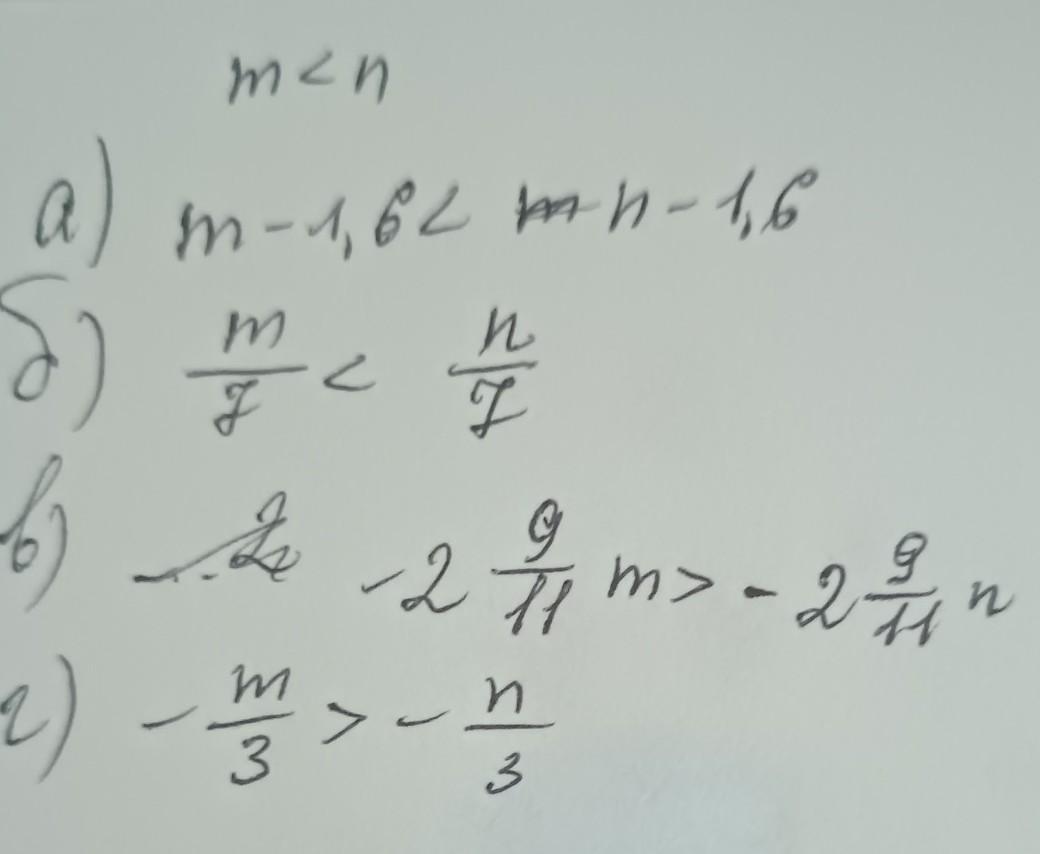 m < n
а) m - 1,6 < n - 1,6
б) m/7 < n/7
в) -2 9/11 m > -2 9/11 n
г) -m/3 > -n/3